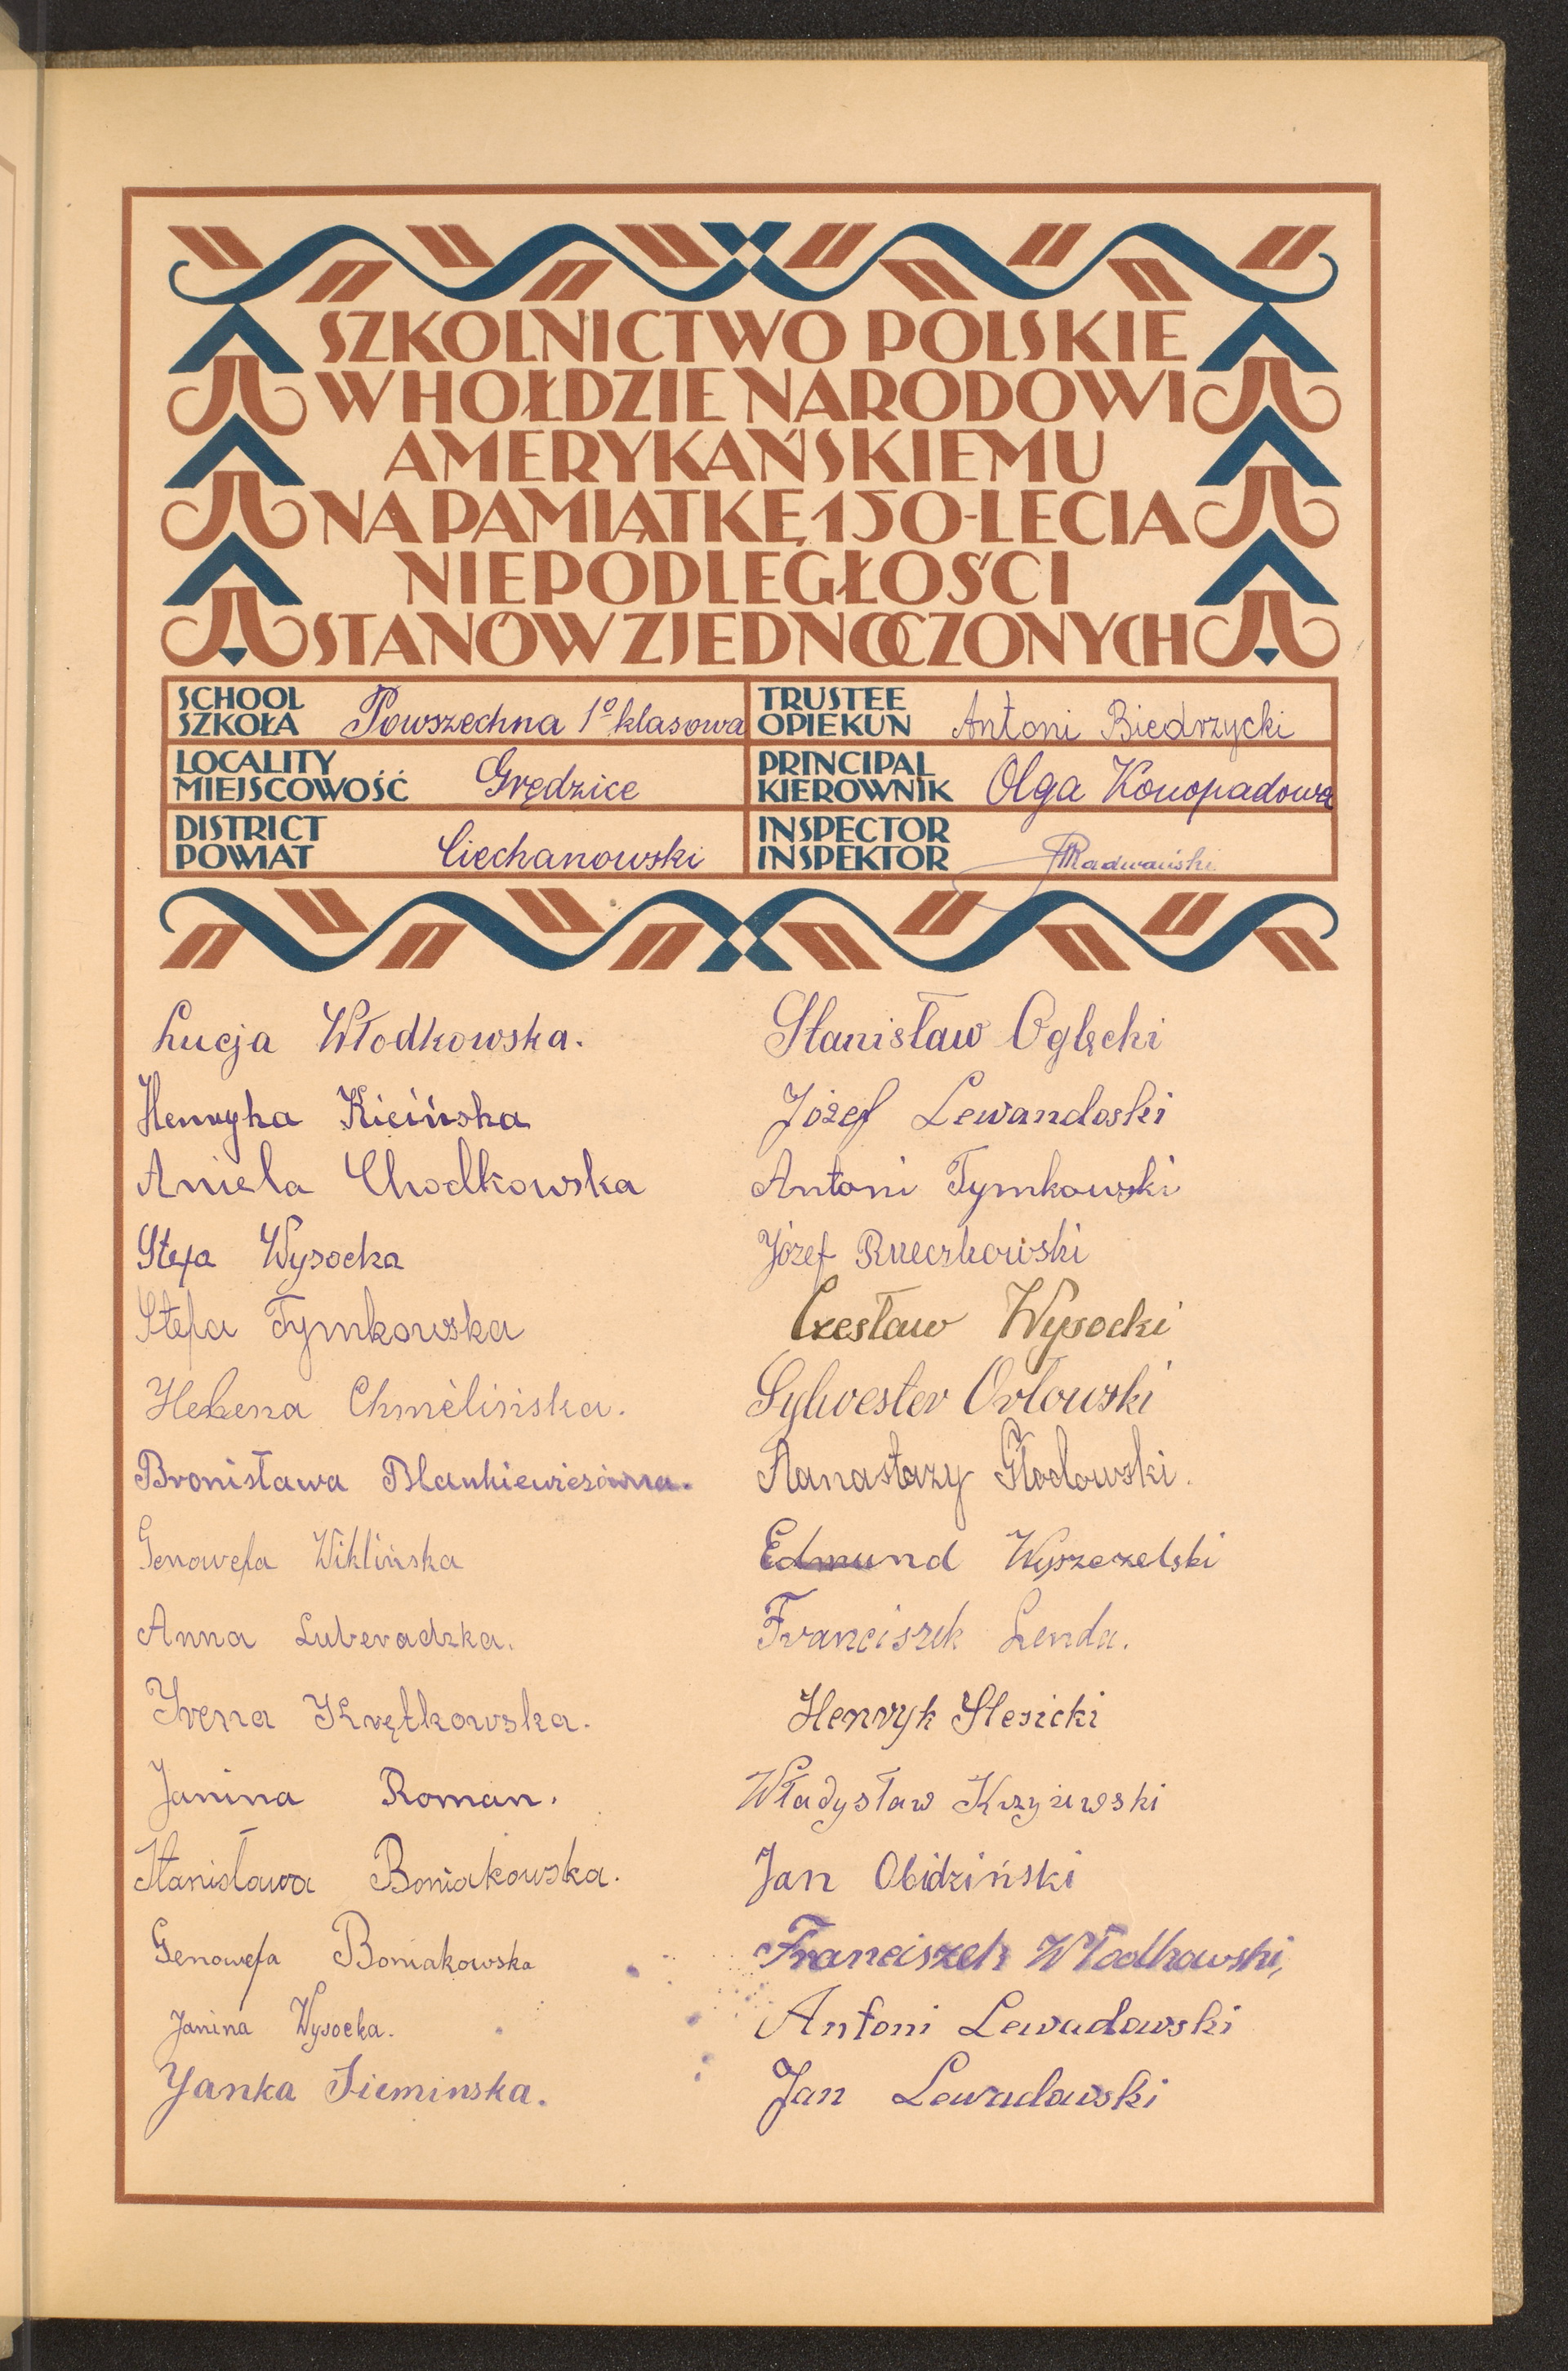 SZKOLNICTWO POLSKIE
W HOŁDZIE NARODOWI
AMERYKAŃSKIEMU
NA PAMIĄTKĘ 150-LECIA
NIEPODLEGŁOŚCI
STANÓW ZJEDNOCZONYCH
SCHOOL
SZKOŁA Powszechna 1º klasowa
TRUSTEE
OPIEKUN Antoni Biedrzycki
LOCALITY
MIEJSCOWOŚĆ Grędzice
PRINCIPAL
KIEROWNIK Olga Konopadowa
DISTRICT
POWIAT Ciechanowski
INSPECTOR
INSPEKTOR Radwański
Łucja Włodkowska.
Henryka Kicińska
Aniela Chodkowska
Stefa Wysocka
Stefa Tymkowska
Helena Chmèlińska.
Bronisława Blankiewiczówna.
Genowefa Wiklińska
Anna Luberadzka.
Yrena Krętkowska.
Janina Roman.
Stanisława Boniakowska.
Genowefa Boniakowska
Janina Wysocka.
Yanka Sieminska.
Stanisław Oglęcki
Józef Lewandoski
Antoni Tymkowski
Józef Rzeczkowski
Czesław Wysocki
Sylwester Orłowski
Aanastazy Głodowski.
Edmund Wyszczelski
Franciszek Lenda.
Henryk Slesicki
Władysław Krzyżewski
Jan Obidziński
Franciszek Włodkowski,
Antoni Lewadowski
Jan Lewadowski